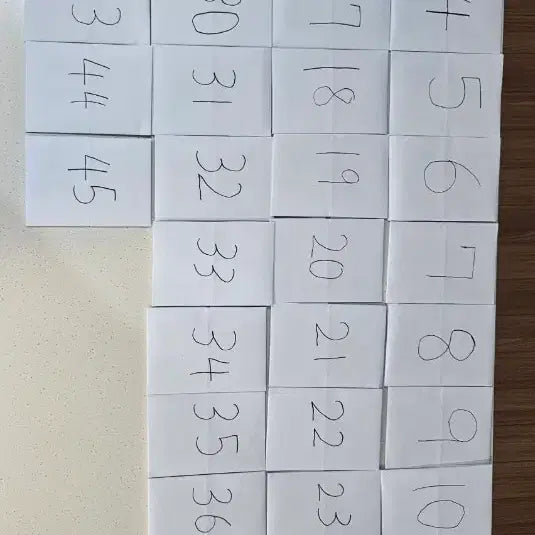 4 5 6 7 8 9 10
7 18 19 20 21 22 23
30 31 32 33 34 35 36
3 44 45